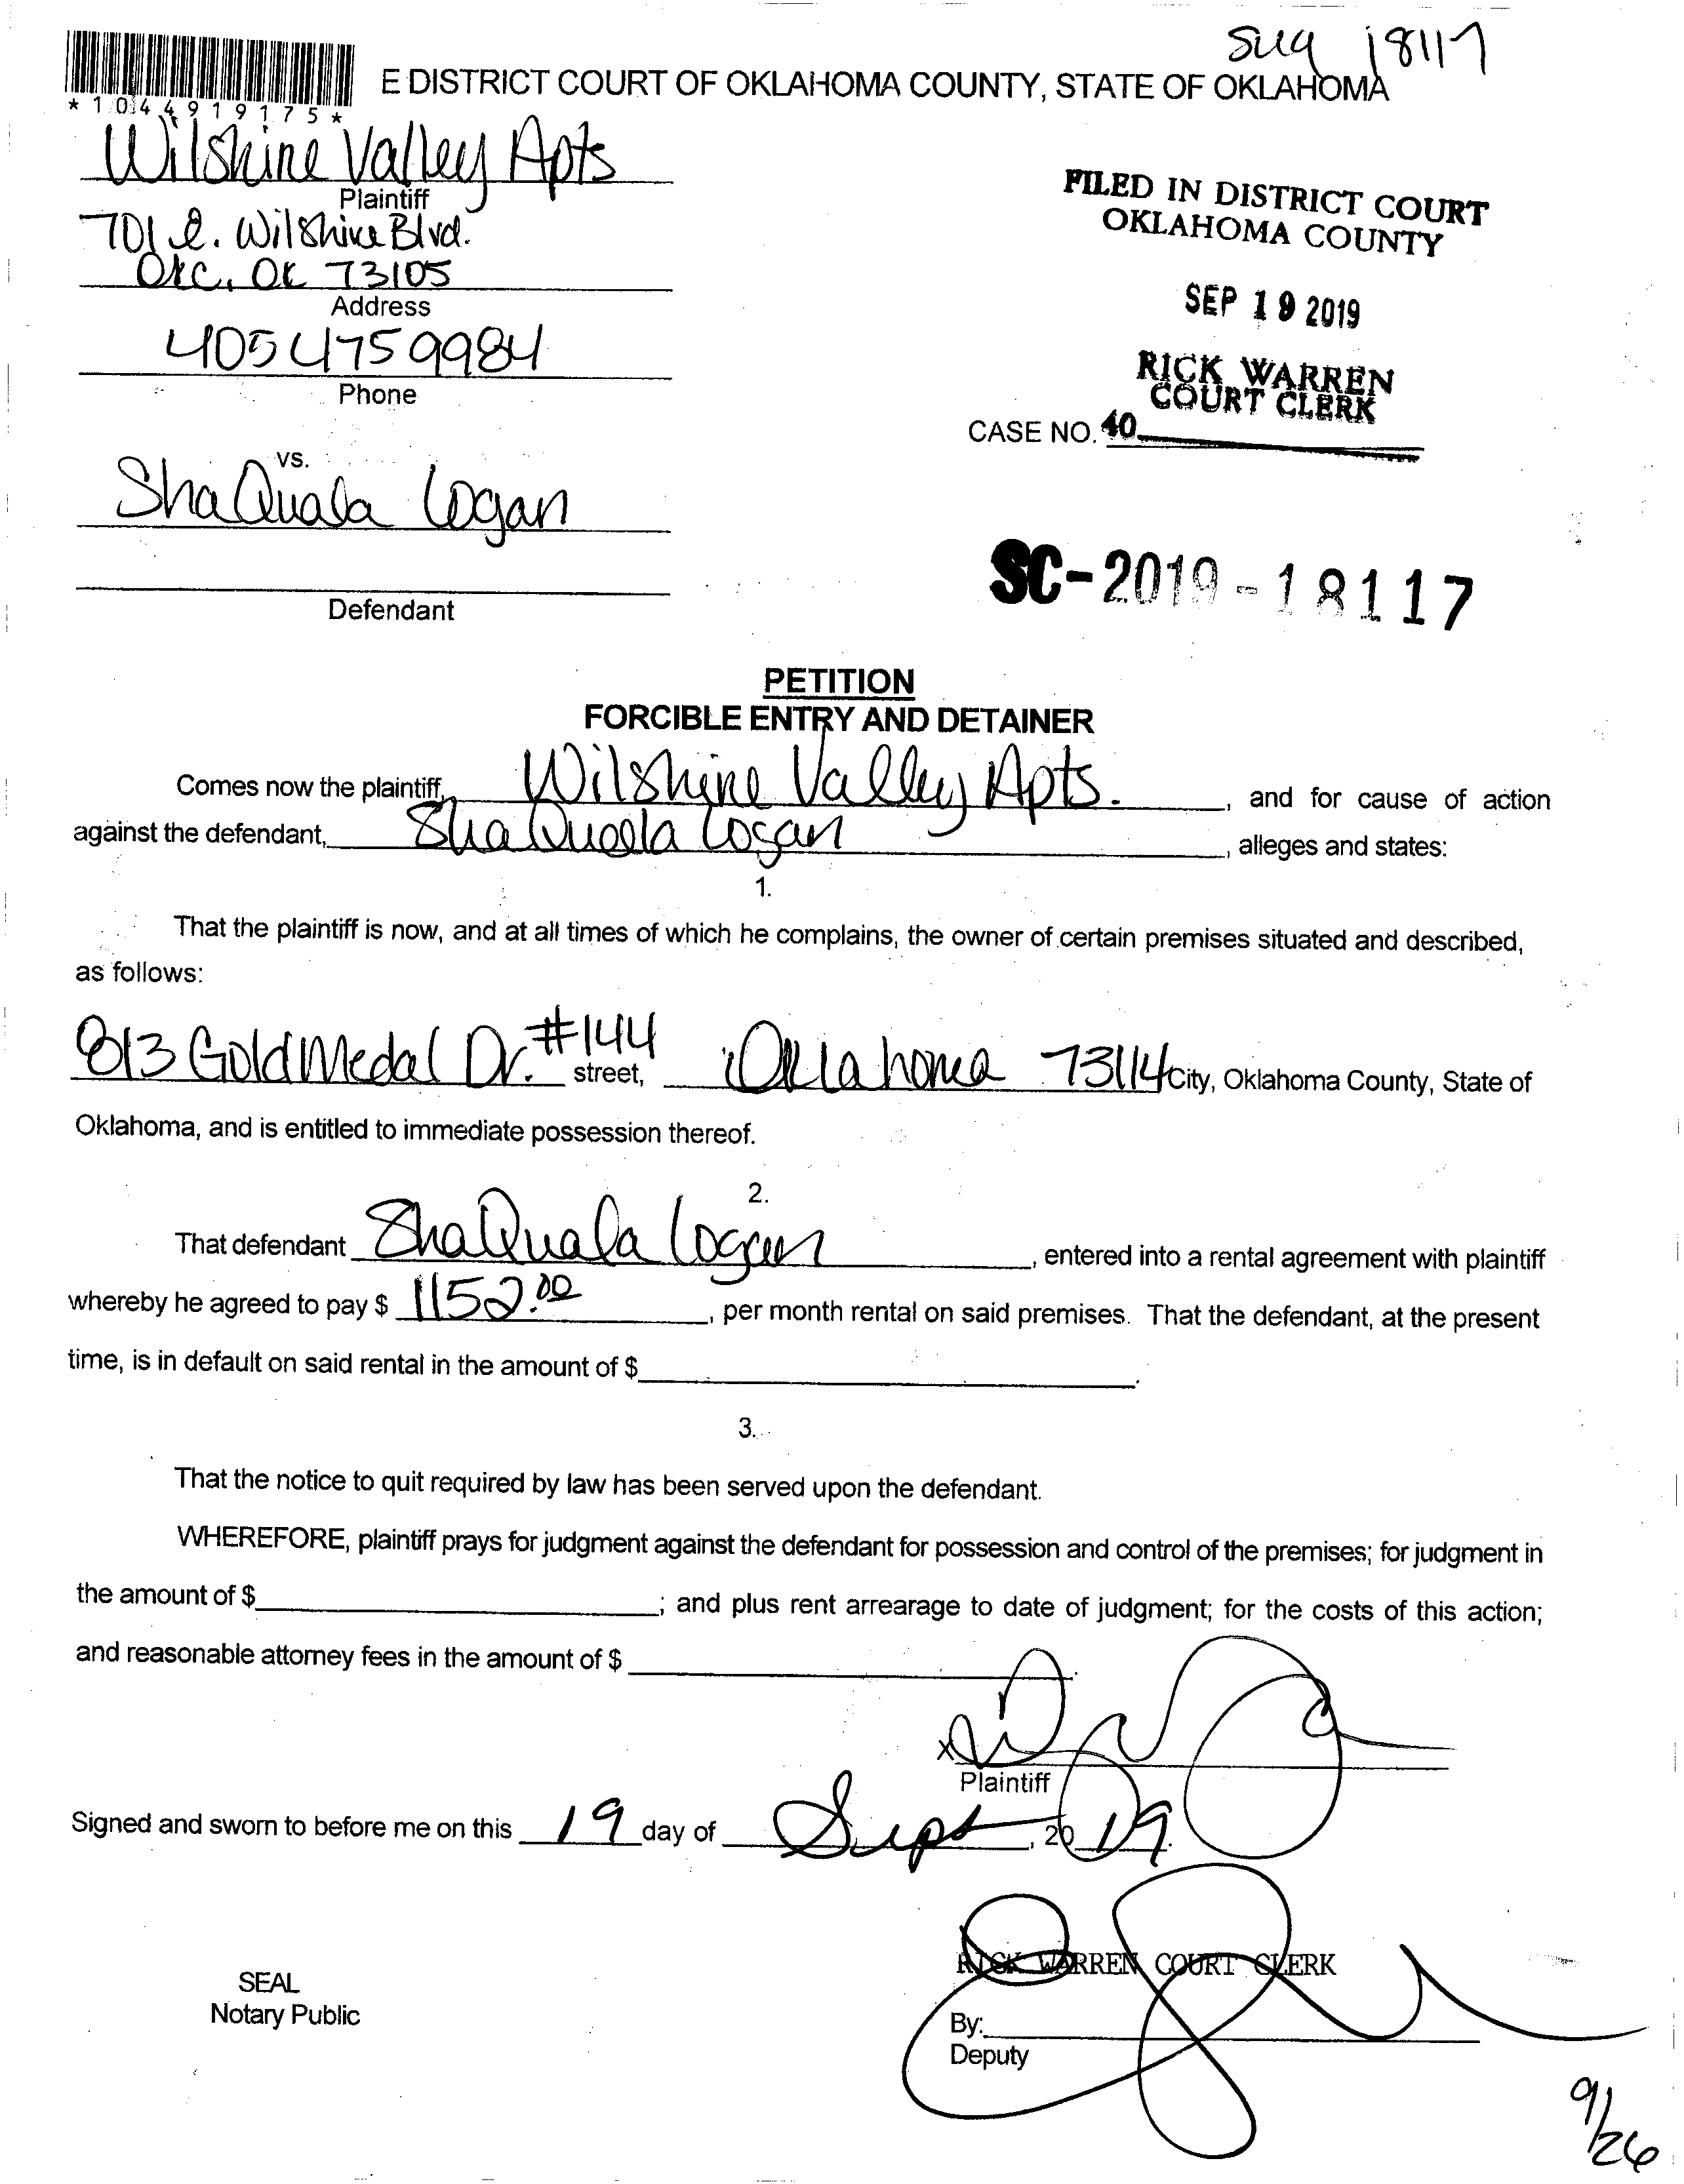 18117
E DISTRICT COURT OF OKLAHOMA COUNTY, STATE OF OKLAHOMA
*1044919175*
Wilshire Valley Apts
Plaintiff
701 E. Wilshire Blvd.
OKC, OK 73105
Address
405 475 9984
Phone
FILED IN DISTRICT COURT
OKLAHOMA COUNTY
SEP 19 2019
RICK WARREN
COURT CLERK
CASE NO. 40
vs.
ShaQuala Logan
Defendant
SC-2019-18117
PETITION
FORCIBLE ENTRY AND DETAINER
Comes now the plaintiff, Wilshire Valley Apts. , and for cause of action
against the defendant, ShaQuala Logan , alleges and states:
1.
That the plaintiff is now, and at all times of which he complains, the owner of certain premises situated and described,
as follows:
813 Gold Medal Dr. #144 street, Oklahoma 73114 City, Oklahoma County, State of
Oklahoma, and is entitled to immediate possession thereof.
2.
That defendant ShaQuala Logan , entered into a rental agreement with plaintiff
whereby he agreed to pay $ 1152.00 , per month rental on said premises. That the defendant, at the present
time, is in default on said rental in the amount of $ .
3.
That the notice to quit required by law has been served upon the defendant.
WHEREFORE, plaintiff prays for judgment against the defendant for possession and control of the premises; for judgment in
the amount of $ ; and plus rent arrearage to date of judgment; for the costs of this action;
and reasonable attorney fees in the amount of $ .
X
Plaintiff
Signed and sworn to before me on this 19 day of Sept , 20 19.
RICK WARREN COURT CLERK
SEAL
Notary Public
By:
Deputy
9/26